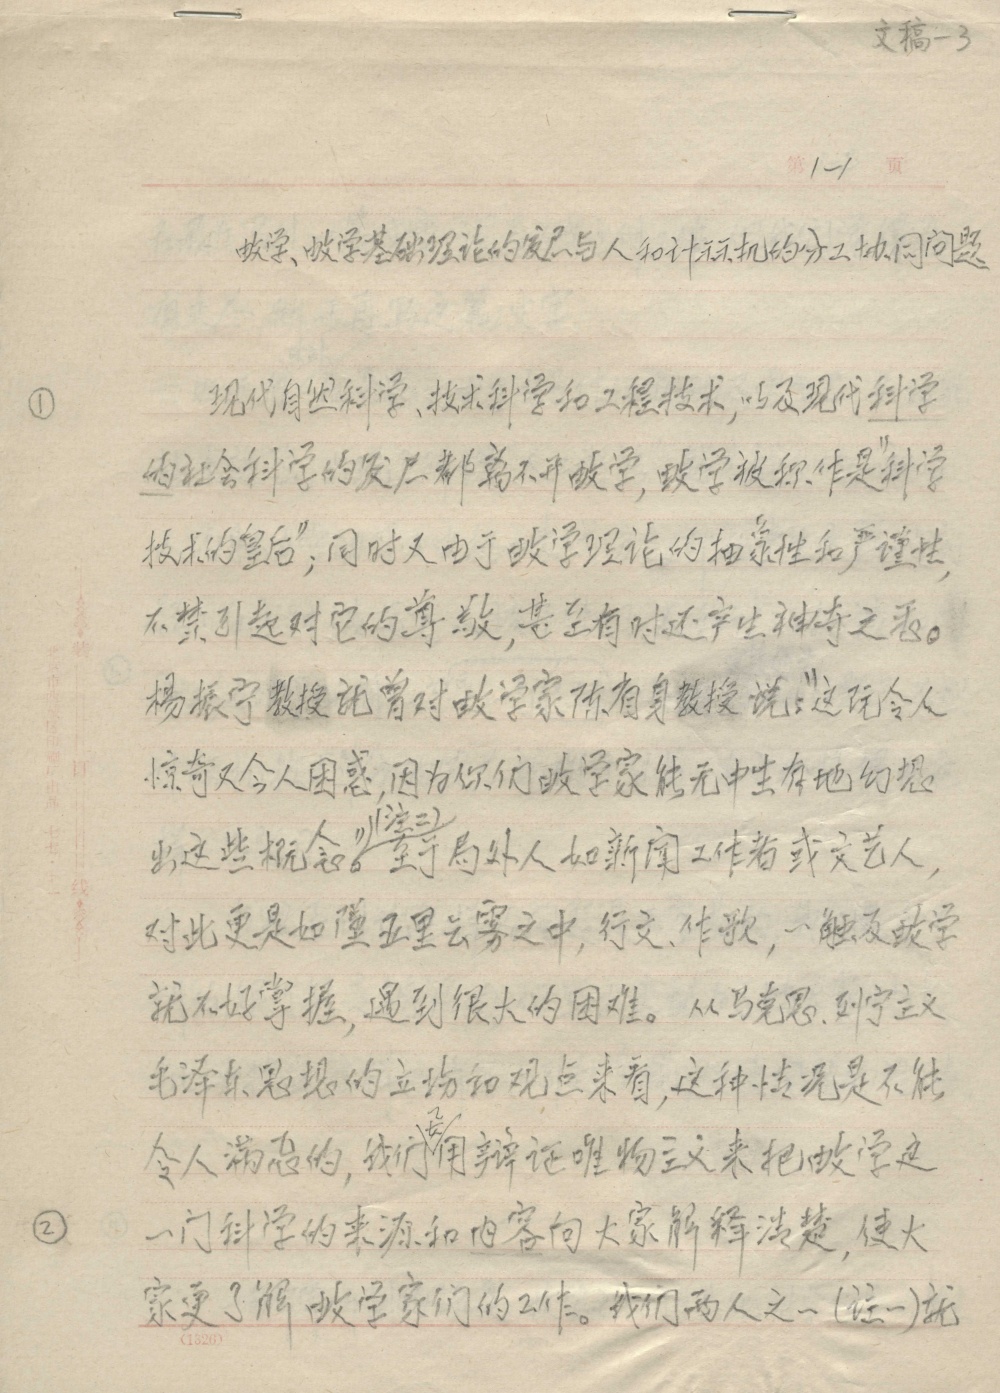 文稿—3
第 1-1 页
数学、数学基础理论的发展与人和计标机的分工协同问题
① 现代自然科学、技术科学和工程技术，以及现代科学
的社会科学的发展都离不开数学，数学被称作是"科学
技术的皇后"；同时又由于数学理论的抽象性和严谨性，
不禁引起对它的尊敬，甚至有时还产生神奇之感。
杨振宁教授就曾对数学家陈省身教授说："这既令人
惊奇又令人困惑，因为你们数学家能无中生有地幻想
出这些概念。"(注二) 至于局外人如新闻工作者或文艺人，
对此更是如堕五里云雾之中，行文、作歌，一触及数学
就不好掌握，遇到很大的困难。从马克思、列宁主义
毛泽东思想的立场和观点来看，这种情况是不能
令人满意的，我们要用辩证唯物主义来把数学这
② 一门科学的来源和内容向大家解释清楚，使大
家更了解数学家们的工作。我们两人之一(注一)就
(1326)